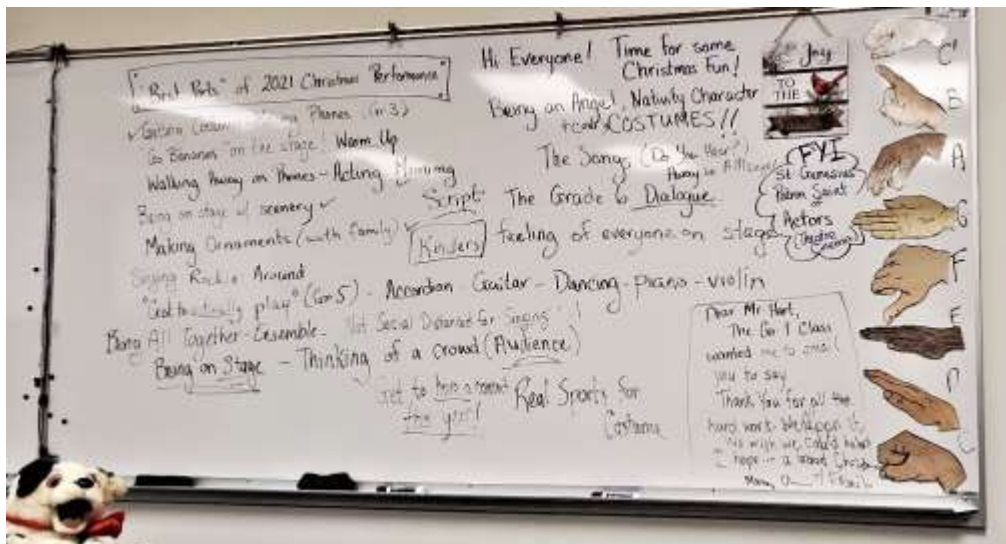 "Best Parts" of 2021 Christmas Performance
Phones (Gr 3)
Go Bananas "on the stage! Warm Up
Walking Away on Phones - Acting Miming
Being on stage w/ scenery ✓
Making Ornaments (with family) ✓
Singing Rockin Around
"Got to actually play" (Gr 5) - Accordion Guitar - Dancing - piano - violin
Being All Together - Ensemble - Not Social Distanced for Singing !
Being on Stage - Thinking of a crowd (Audience)
get to
the year!
Real Sports for
Costume
Hi Everyone! Time for some
Christmas Fun!
Being an Angel, Nativity Character
COSTUMES!!
The Song (Do You Hear?)
Away in A Manger
Script The Grade 6 Dialogue
Kinders feeling of everyone on stage
FYI
St Genesius
Patron Saint
of
Actors
(Theatre
Joy
TO
THE
C'
B
A
G
F
E
D
C
Dear Mr Hart,
The Gr 1 Class
wanted me to email
you to say
Thank You for all the
hard work. We
wish we could
hope
Many